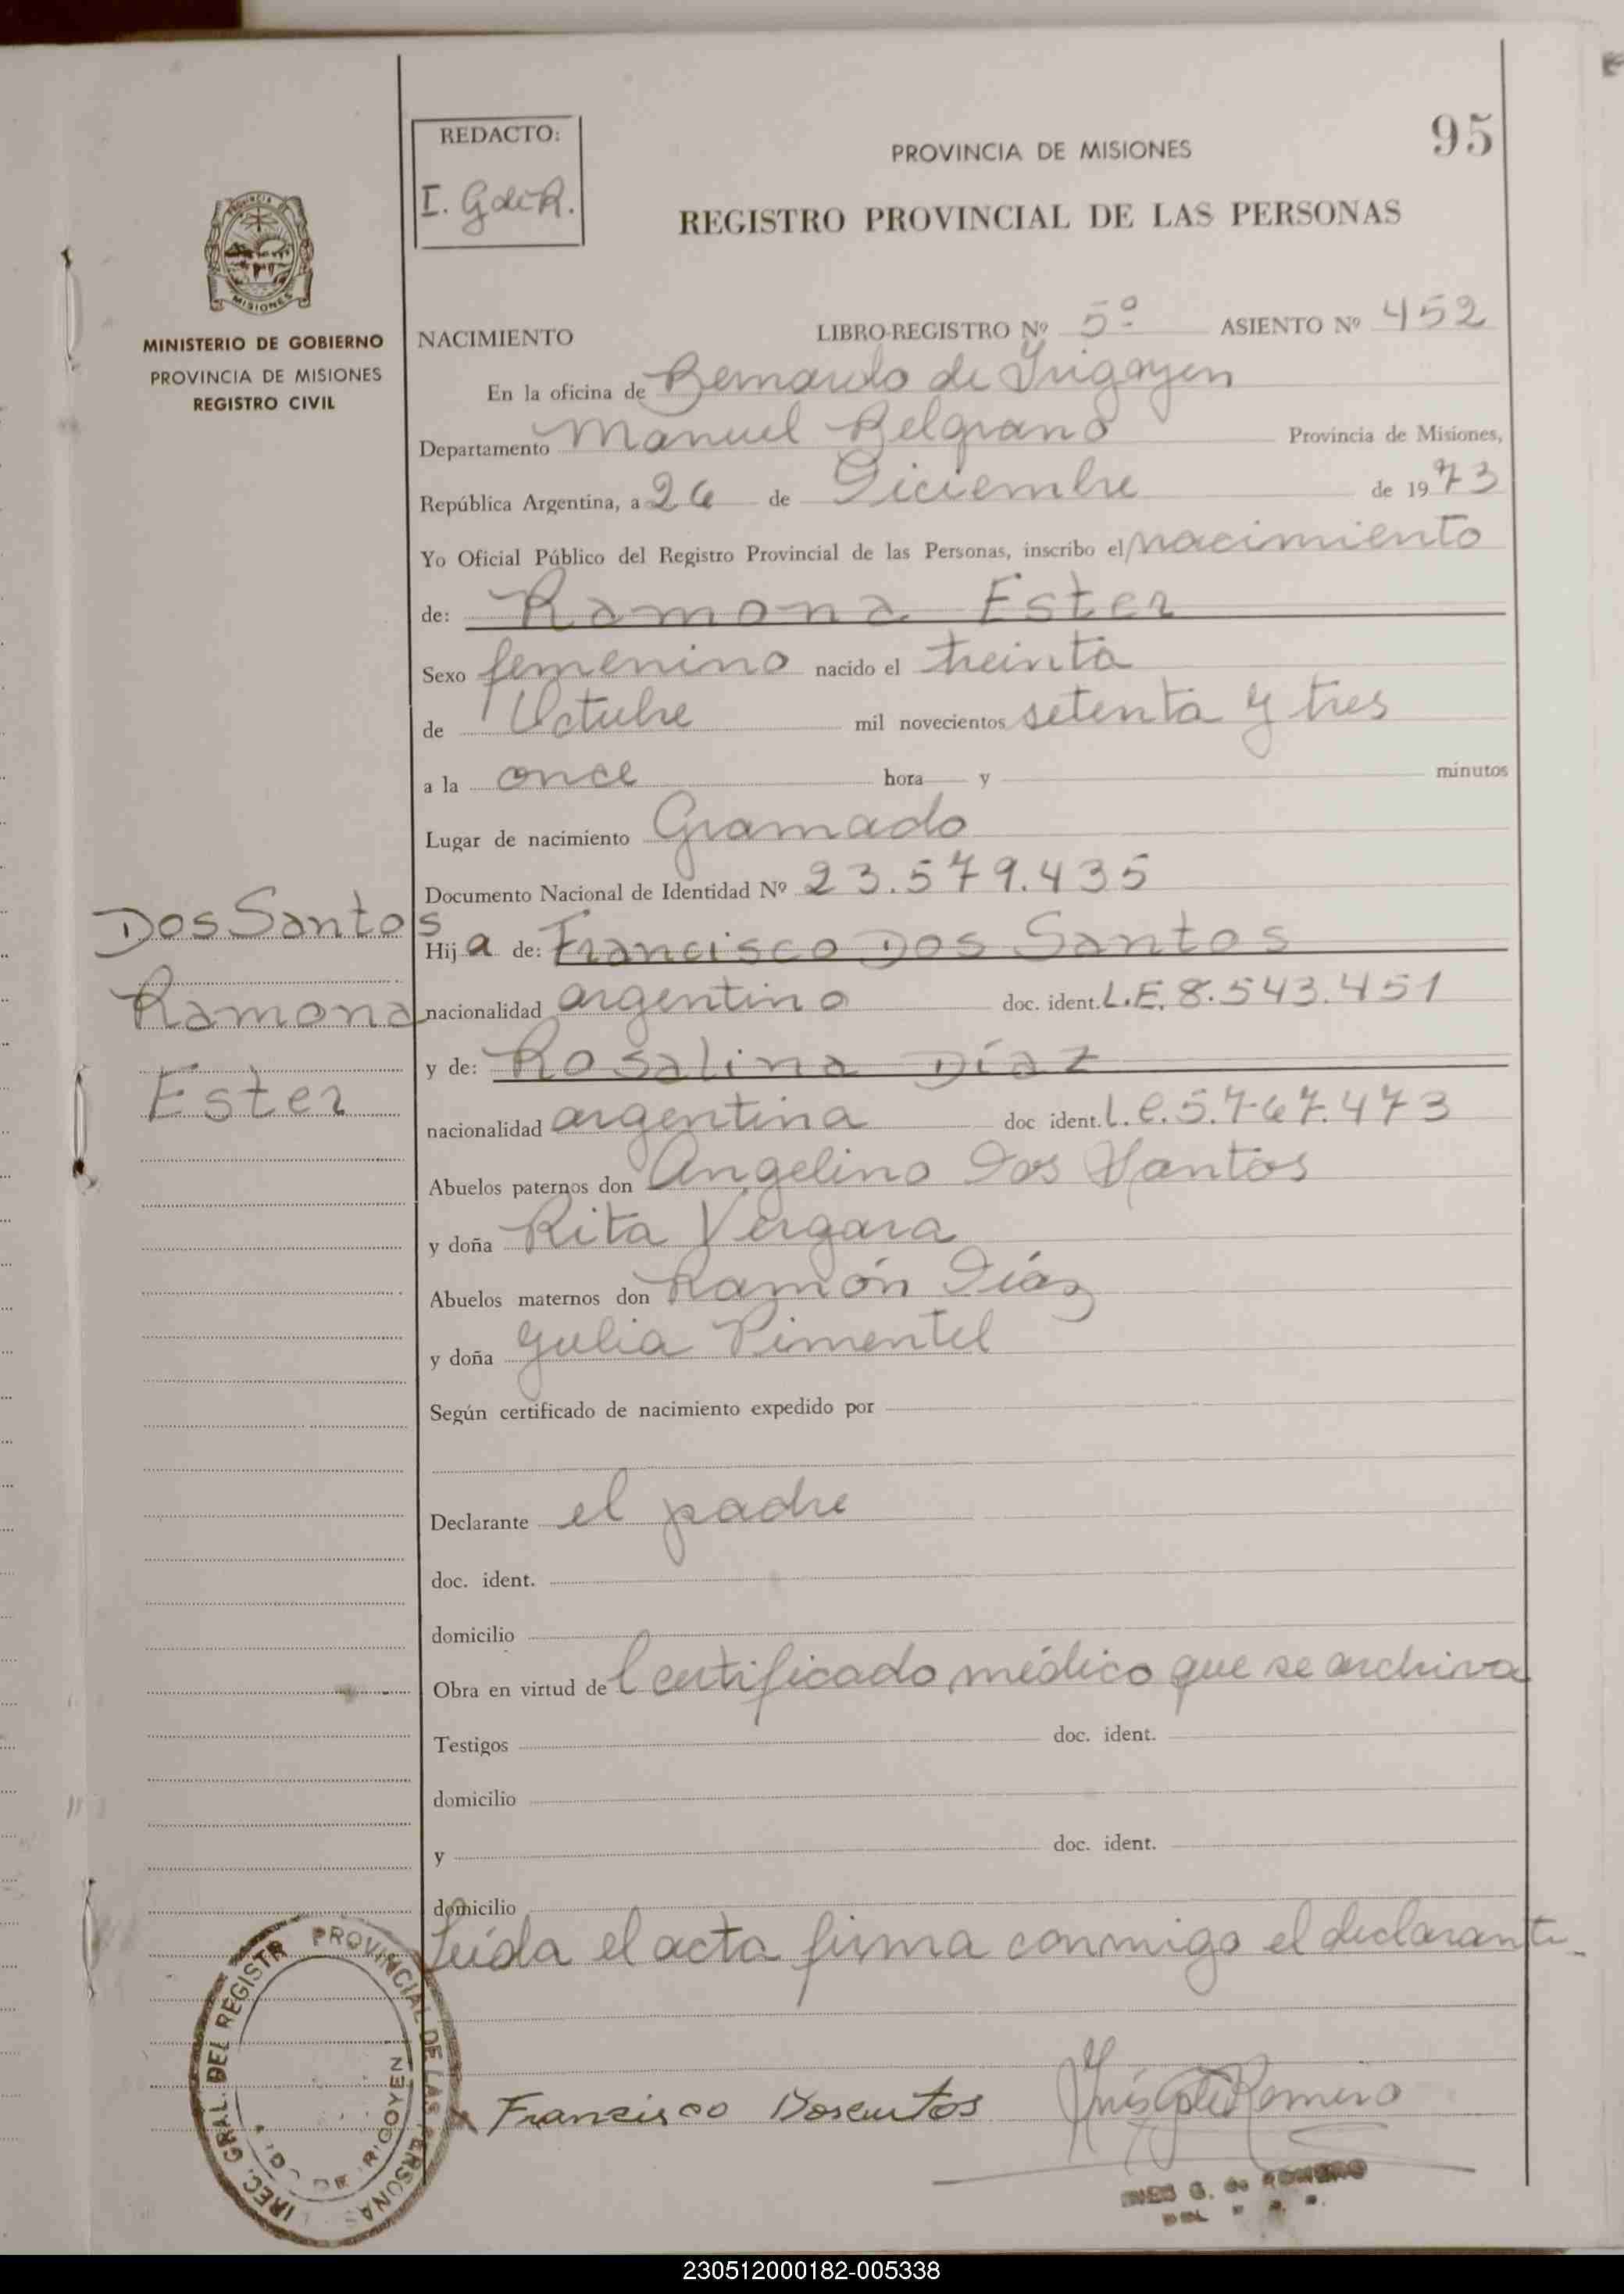 95
REDACTO:
I. G de R.
PROVINCIA DE MISIONES
REGISTRO PROVINCIAL DE LAS PERSONAS
MISIONES
MINISTERIO DE GOBIERNO
PROVINCIA DE MISIONES
REGISTRO CIVIL
NACIMIENTO LIBRO-REGISTRO Nº 5º ASIENTO Nº 452
En la oficina de Bernardo de Irigoyen
Departamento Manuel Belgrano Provincia de Misiones,
República Argentina, a 26 de Diciembre de 1973
Yo Oficial Público del Registro Provincial de las Personas, inscribo el nacimiento
de: Ramona Ester
Sexo femenino nacido el treinta
de Octubre mil novecientos setenta y tres
a la once hora y minutos
Lugar de nacimiento Gramado
Documento Nacional de Identidad Nº 23.579.435
Dos Santos
Ramona
Ester
Hija de: Francisco Dos Santos
nacionalidad argentino doc. ident. L.E. 8.543.451
y de: Rosalina Díaz
nacionalidad argentina doc ident. L.C. 5.767.473
Abuelos paternos don Angelino Dos Santos
y doña Rita Vergara
Abuelos maternos don Ramón Díaz
y doña Julia Pimentel
Según certificado de nacimiento expedido por
Declarante el padre
doc. ident.
domicilio
Obra en virtud de Certificado médico que se archiva
Testigos doc. ident.
domicilio
y doc. ident.
domicilio
Leída el acta firma conmigo el declarante
PROVINCIAL DE LAS PERSONAS
GRAL. DEL REGISTR
Francisco Dosantos
Inés G de Romero
INES G. de ROMERO
230512000182-005338